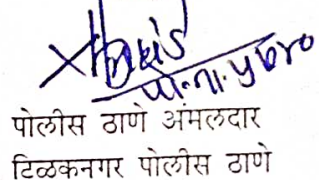 पो.ना. ५७०
पोलीस ठाणे अंमलदार
टिळकनगर पोलीस ठाणे